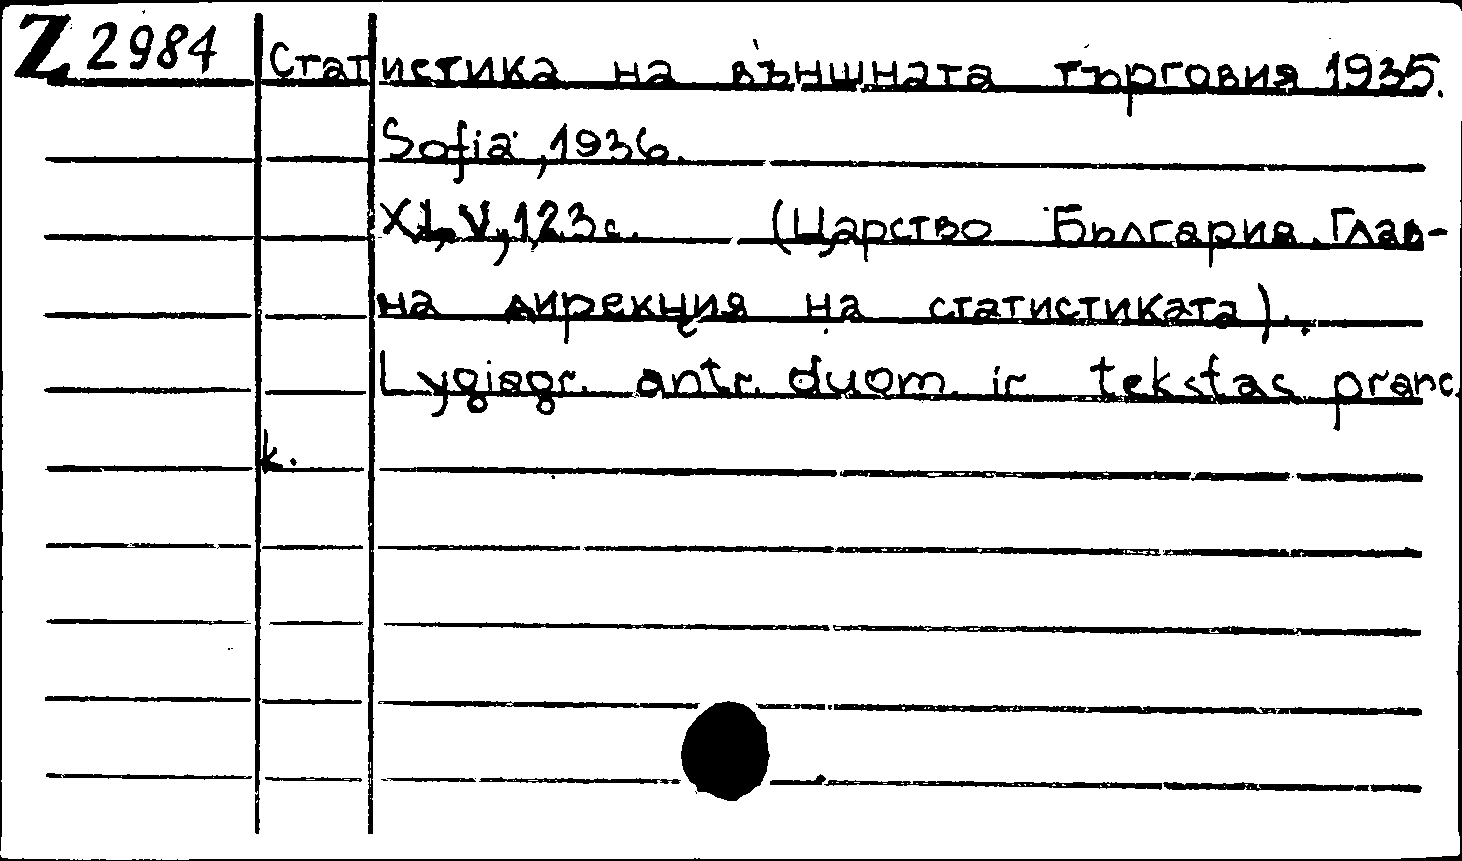 Z 2984 Статистика на външната търговия 1935.
Sofia, 1936.
XLV, 123 с. (Царство България. Глав-
на дирекция на статистиката).
Lygiagr. antr. duom. ir tekstas pranc.
k.